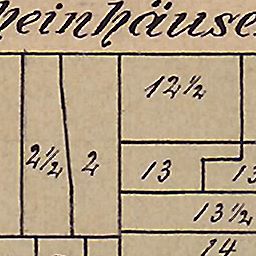 heinhäuse
12½
2½ 2
13 13
13½
14